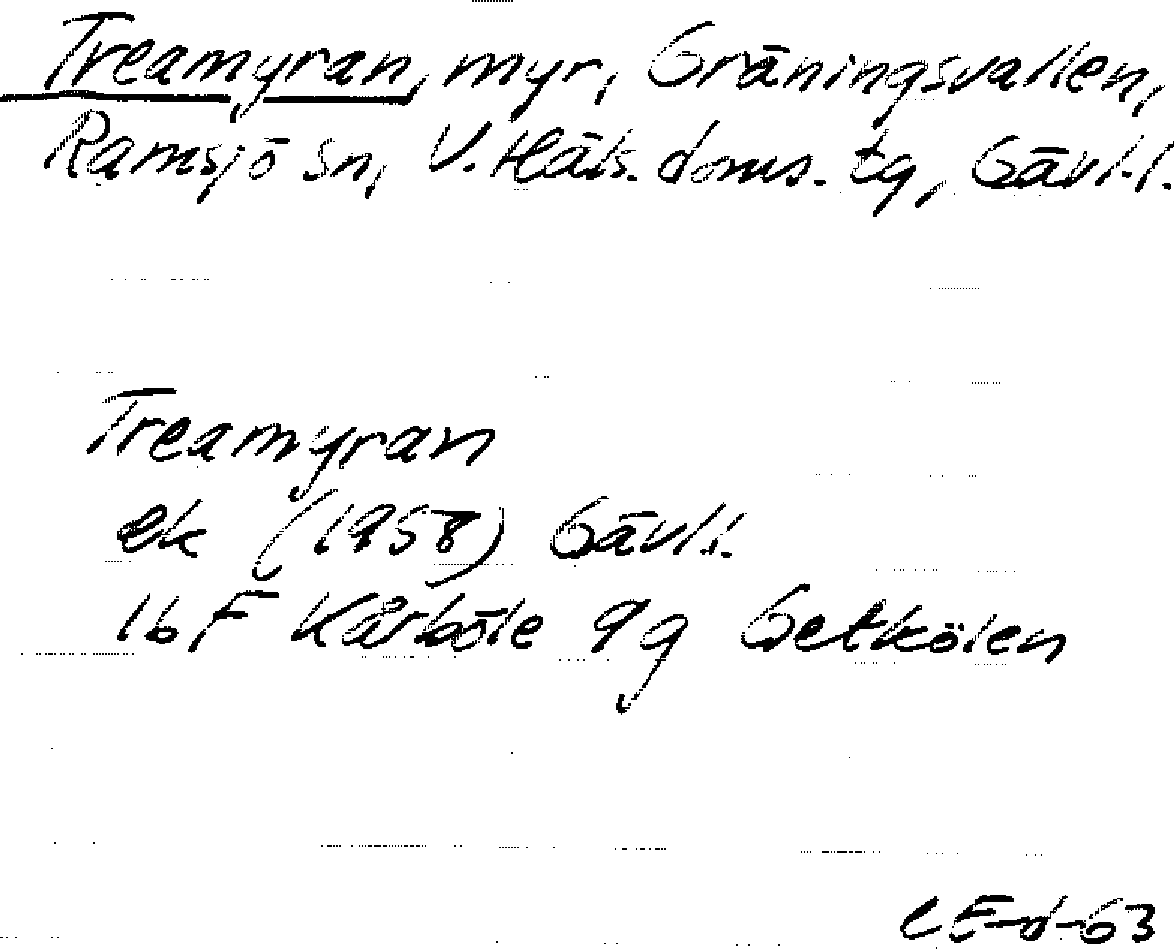 Treamyran, myr, Gräningsvallen,
Ramsjö sn, V. Häls. doms. tg, Gävl.l.
Treamyran
ek (1958) Gävl.l.
16 F Kårböle 9g Getkölen
CE-d-63